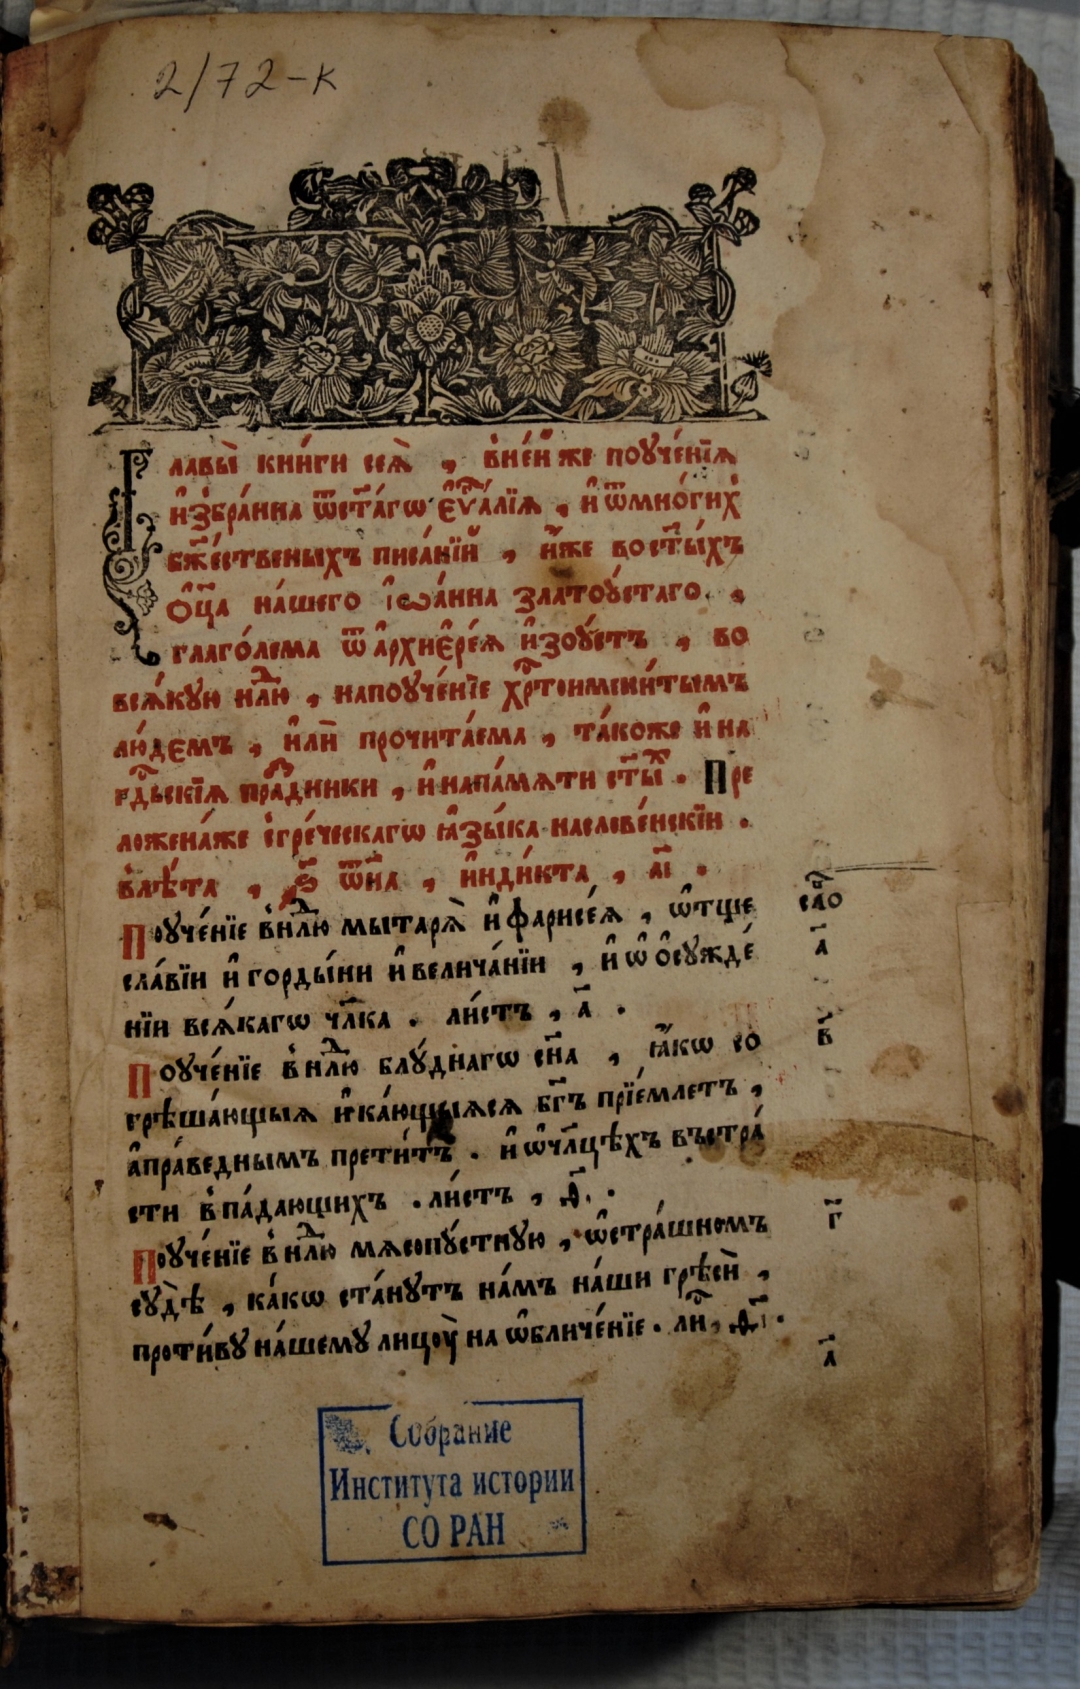 2/72-к
Главы̀ кни́ги сея̀ , в̾не́й же поуче́нїѧ
и҆з̾бра́нна ѿст҃а́гѡ є҆ѵⷢ҇а́лїѧ , и҆ ѿмно́гихъ
бж҃е́ственыхъ писа́нїй , и҆́же во ст҃ы́хъ
ѻ҆ц҃а на́шего і҆ѡа́нна златоу́стаго ,
глаго́лема ѿ а҆рхиере́ѧ и҆зоу́стъ , во
всѧ́кую нлⷣю , на поуче́нїе хрⷭ҇тоимени́тымъ
лю́демъ , и҆лѝ прочита́ема , та́коже и҆ на
гдⷭ҇ьскїѧ пра́зⷣники , и҆ на па́мѧти ст҃ы́хъ . Пре
ложена́же з̾гре́ческагѡ ѧ҆зы́ка на слове́нскїи .
в̾лѣ́та , ҂ѕ҃ ѿ н҃а , и҆нди́кта , а҃і .
Поуче́нїе в̾нлⷣю мытарѧ̀ и҆ фарисе́ѧ , ѡ҆ тще
сла́вїи и҆ горды́ни и҆ велича́нїи , и҆ ѡ҆ ѻ҆сужде́ сло
нїи всѧ́кагѡ чл҃ка . ли́стъ , а҃ . а҃
Поуче́нїе в̾нлⷣю блу́днагѡ сн҃а , ꙗ҆́кѡ со в҃
грѣша́ющыѧ и҆ ка́ющыѧсѧ бг҃ъ прїе́млетъ ,
а҆ пра́веднымъ прети́тъ . и҆ ѡ҆ чл҃цѣхъ въ стра́
сти в̾па́дающихъ . ли́стъ , д҃ .
Поуче́нїе в̾нлⷣю мѧсопу́стную , ѡ҆ стра́шномъ г҃
судѣ̀ , ка́кѡ ста́нутъ на́мъ на́ши грѣсѝ ,
проти́ву на́шему лицоу̀ на ѡ҆бличе́нїе . лиⷭ҇ , д҃і .
Собрание
Института истории
СО РАН